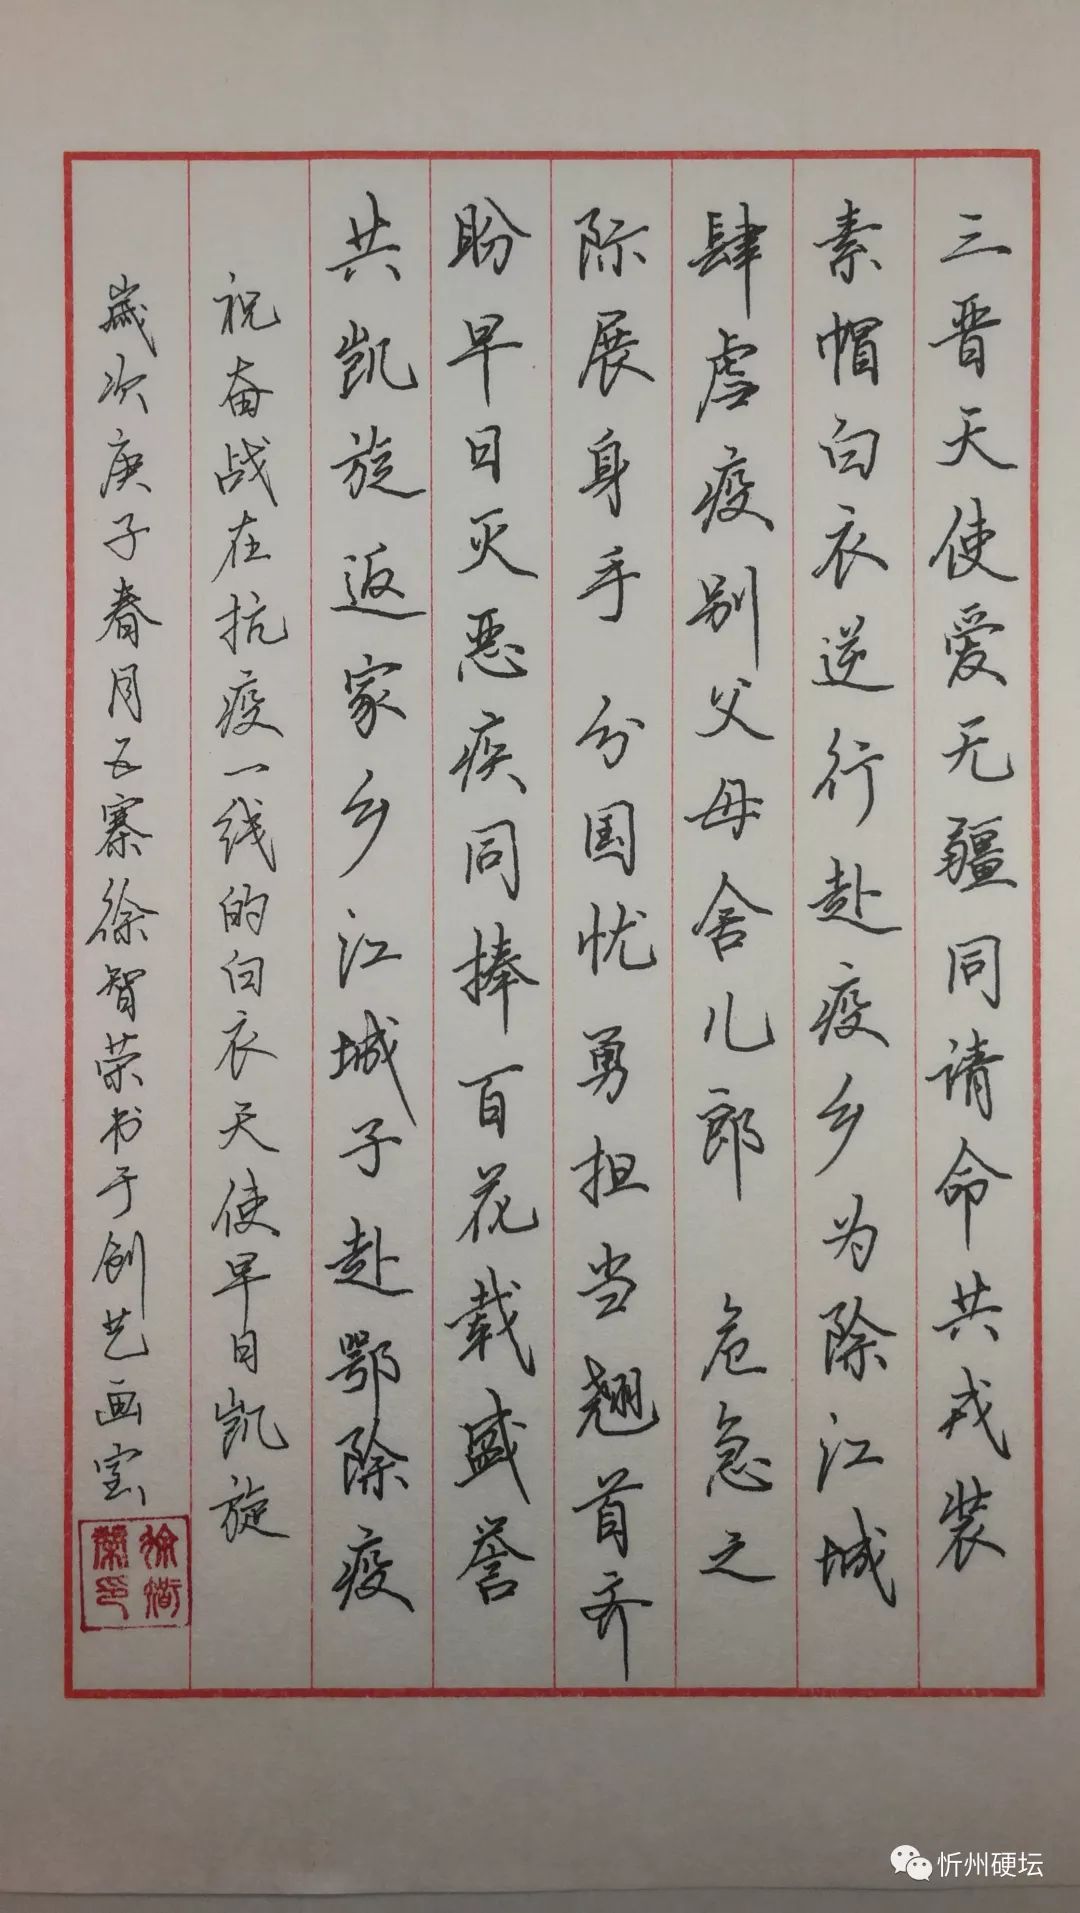 三晋天使爱无疆同请命共戎装
素帽白衣逆行赴疫乡为除江城
肆虐疫别父母舍儿郎 危急之
际展身手 分国忧勇担当翘首齐
盼早日灭恶疾同捧百花载盛誉
共凯旋返家乡江城子赴鄂除疫
祝奋战在抗疫一线的白衣天使早日凯旋
岁次庚子春月五寨徐智荣书于创艺画室
徐智荣印
忻州硬坛